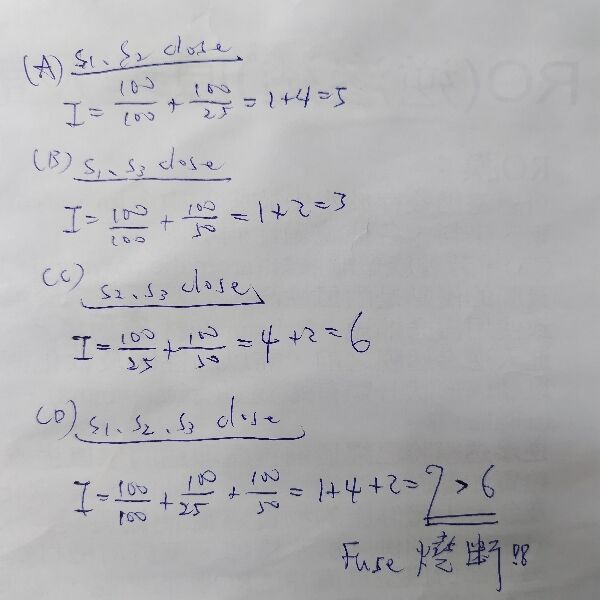 (A) S1、S2 close
I = 100/100 + 100/25 = 1+4=5
(B) S1、S3 close
I = 100/100 + 100/50 = 1+2=3
(C) S2、S3 close
I = 100/25 + 100/50 = 4+2=6
(D) S1、S2、S3 close
I = 100/100 + 100/25 + 100/50 = 1+4+2=7>6
Fuse 燒斷!!